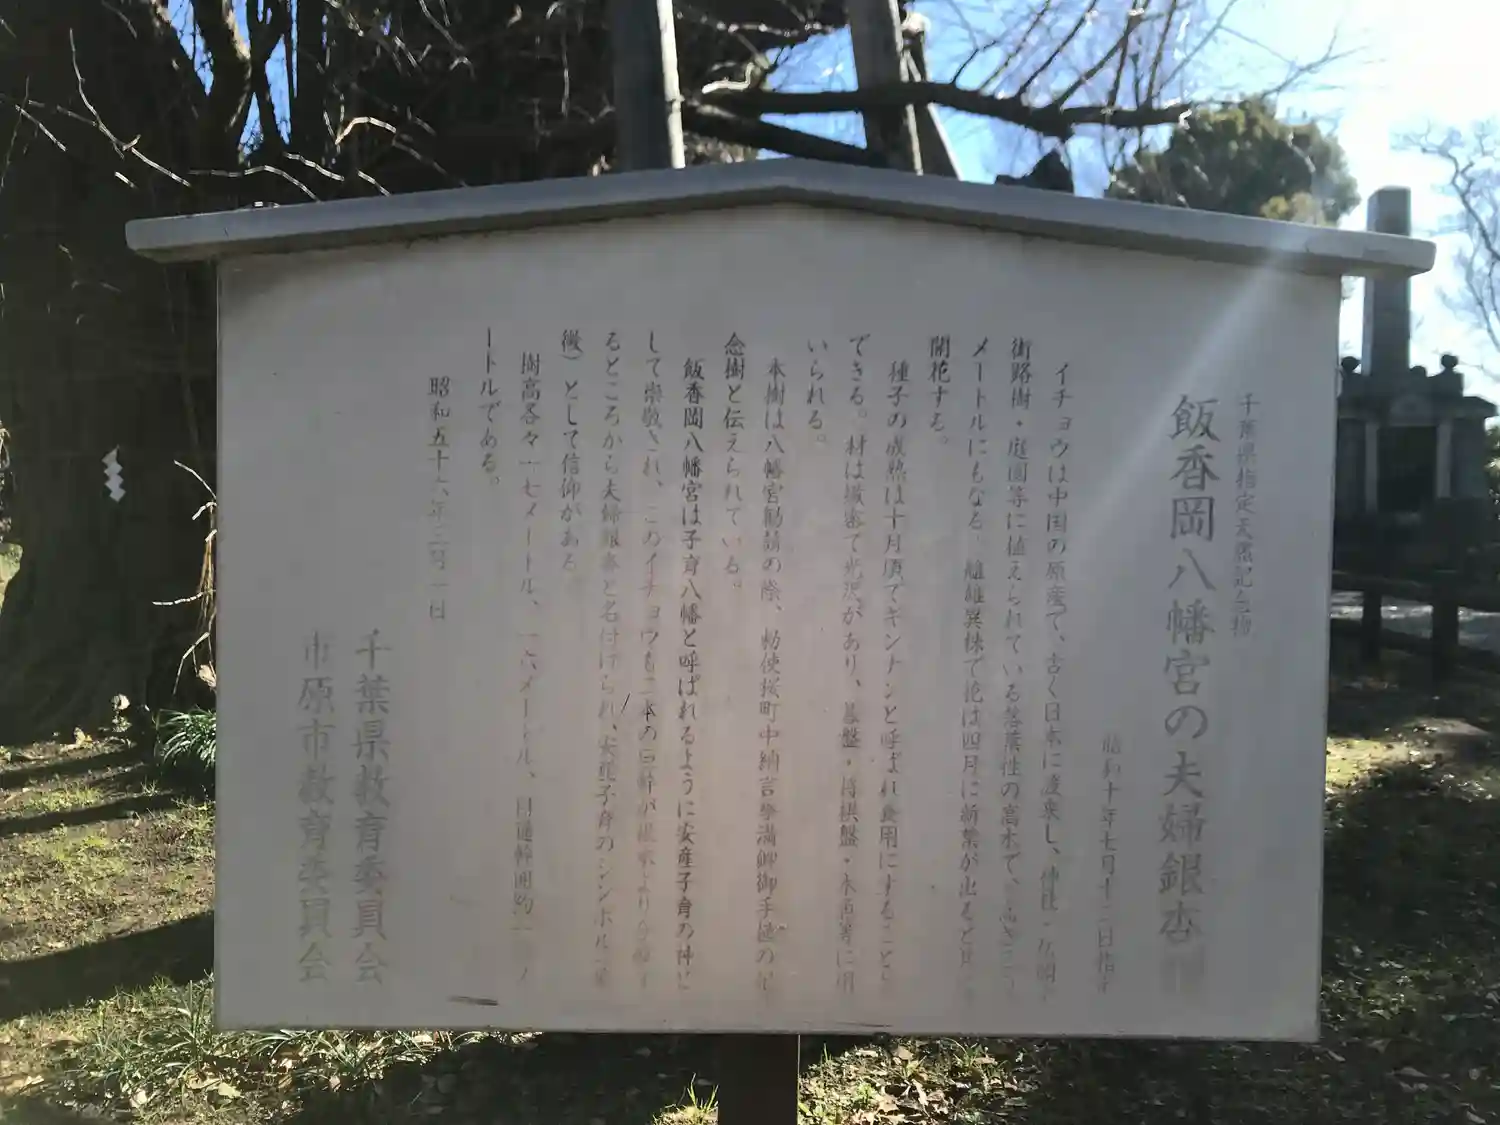 千葉県指定天然記念物
飯香岡八幡宮の夫婦銀杏
昭和十年七月十二日指定
イチョウは中国の原産で、古く日本に渡来し、神社・仏閣
街路樹・庭園等に植えられている落葉性の高木で、高さ三〇
メートルにもなる。雌雄異株で花は四月に新葉が出ると共に
開花する。
種子の成熟は十月頃でギンナンと呼ばれ食用にすることも
できる。材は緻密で光沢があり、碁盤・将棋盤・木魚等に用
いられる。
本樹は八幡宮勧請の際、勅使桜町中納言季満卿御手植の記
念樹と伝えられている。
飯香岡八幡宮は子育八幡と呼ばれるように安産子育の神と
して崇敬され、このイチョウも二本の巨幹が根本より分岐す
るところから夫婦銀杏と名付けられ、安産子育のシンボル（象
徴）として信仰がある。
樹高各々一七メートル、一六メートル、目通幹囲約 メ
ートルである。
昭和五十六年三月一日
千葉県教育委員会
市原市教育委員会